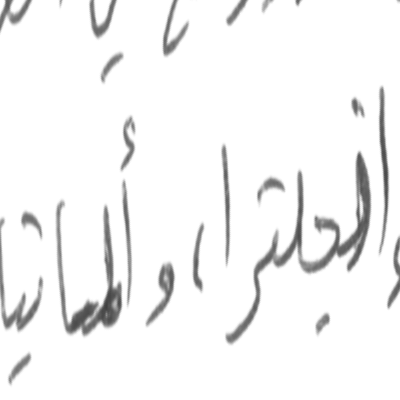 إنجلترا، وألمانيا